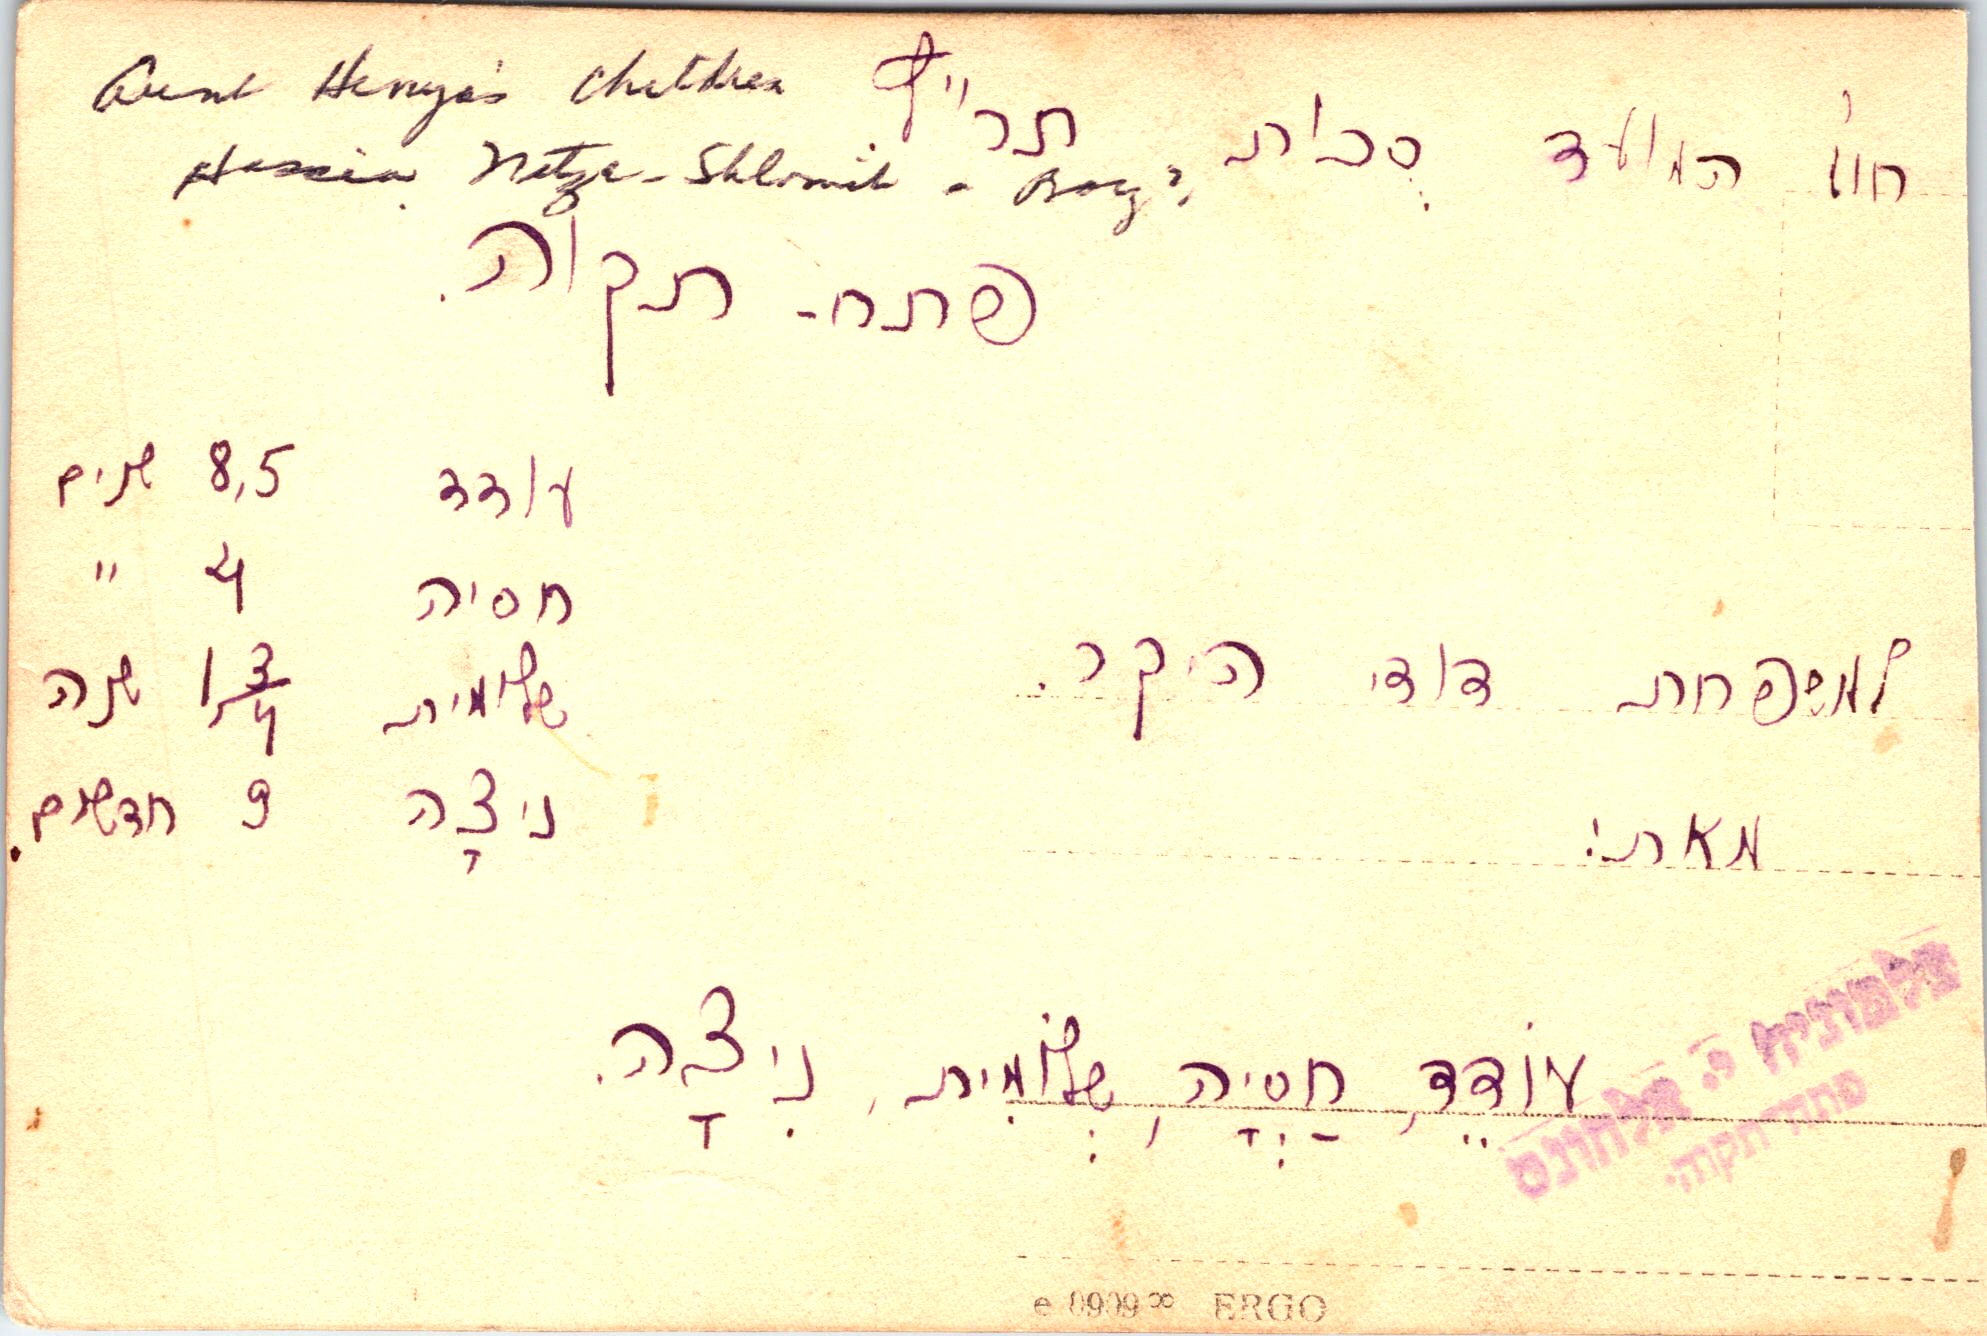 Aunt Henya's Children
Hassia Netza - Shlomit - Boy?
חול המועד סכות,
פתח- תקוה.
עודד 8,5 שנים
חסיה 4 "
שלומית 1 3/4 שנה
ניצָה 9 חדשים.
למשפחת דודי היקר.
מאת:
עוֹדֵד, חַסְיָה, שְלוֹמִית, נִיצָה.
פתח-תקוה.
ERGO